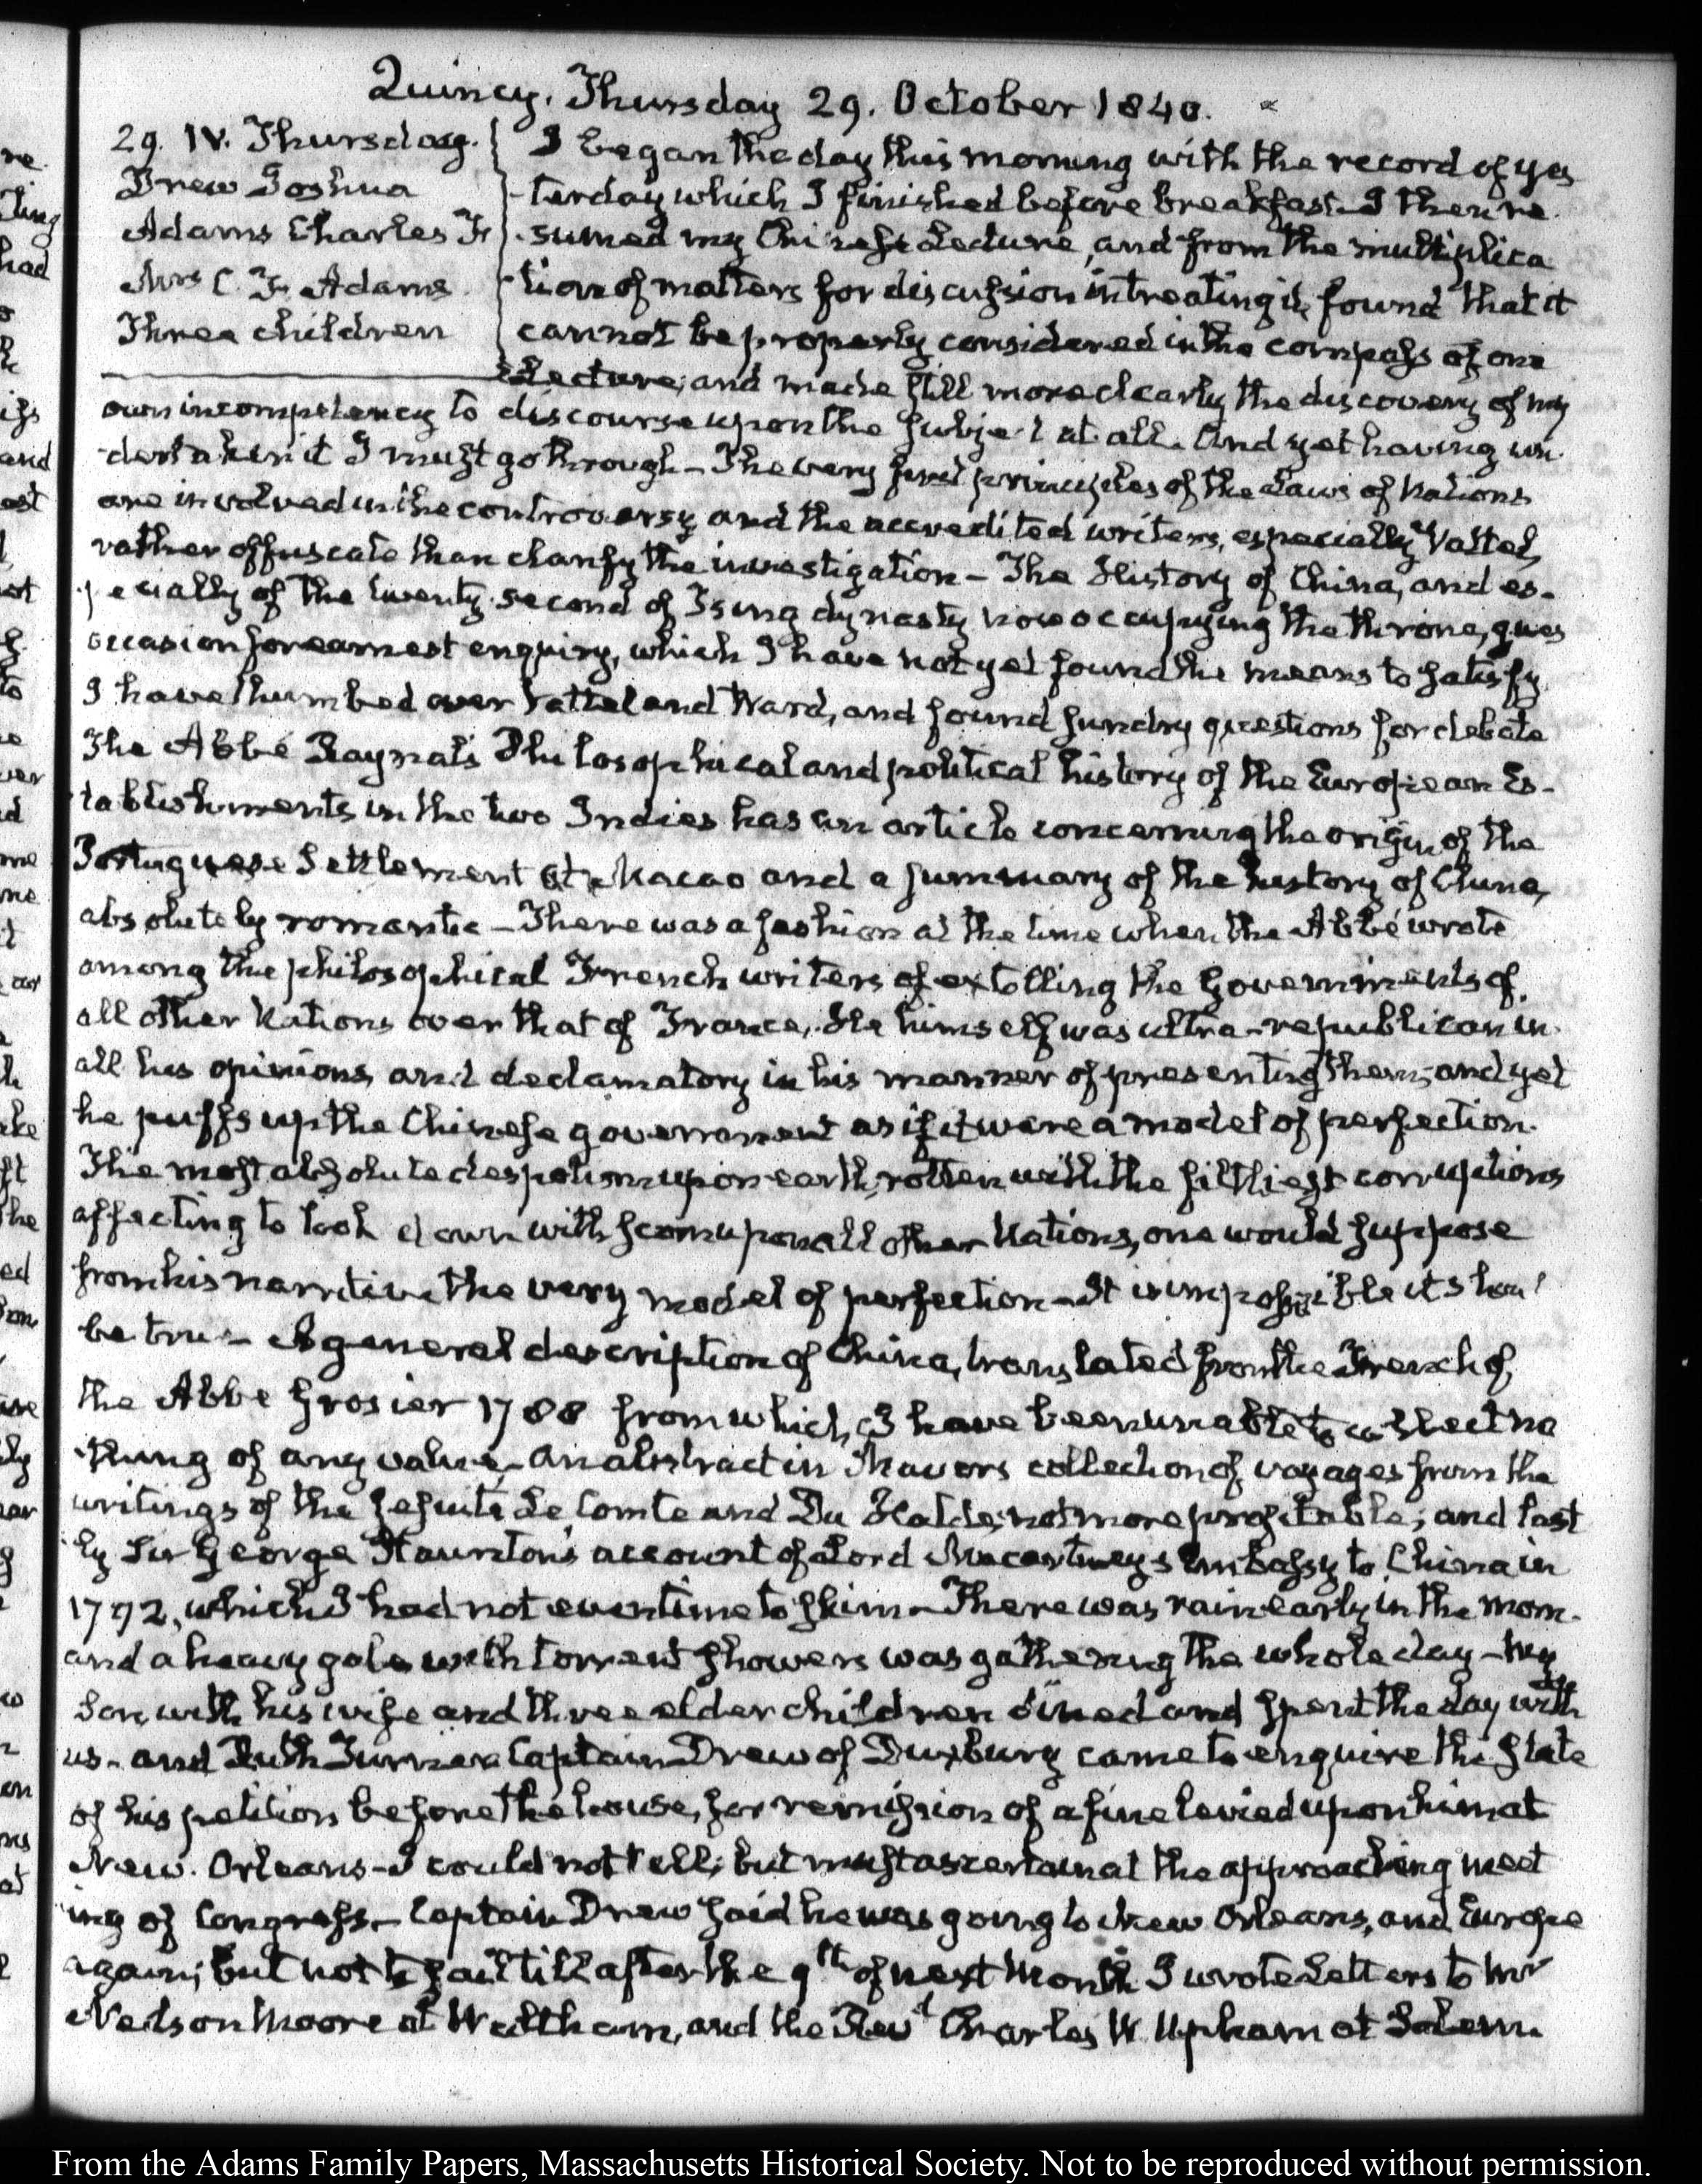 Quincy. Thursday 29. October 1840.
29. IV. Thursday.
Drew Joshua
Adams Charles F.
Mrs C. F. Adams
Three children
I began the day this morning with the record of yes
-terday which I finished before breakfast. I then re
-sumed my Chinese Lecture, and from the multiplica
-tion of matters for discussion in treating it, found that it
cannot be properly considered in the compass of one
Lecture; and made still more clearly the discovery of my
own incompetency to discourse upon the subject at all. And yet having un-
dertaken it I must go through - The very first principles of the Laws of Nations
are involved in the controversy and the accredited writers, especially Vattel,
rather offuscate than clarify the investigation - The History of China, and es-
pecially of the twenty-second of Tsing dynasty now occupying the throne, gives
occasion for earnest enquiry, which I have not yet found the means to satisfy
I have thumbed over Vattel and Ward, and found sundry questions for debate
The Abbé Raynal's Philosophical and political history of the European Es-
tablishments in the two Indies has an article concerning the origin of the
Portuguese Settlement at Macao and a summary of the history of China,
absolutely romantic - There was a fashion at the time when the Abbé wrote
among the philosophical French writers of extolling the Governments of
all other Nations over that of France. He himself was ultra-republican in
all his opinions, and declamatory in his manner of presenting them; and yet
he puffs up the Chinese government as if it were a model of perfection.
The most absolute despotism upon earth, rotten with the filthiest corruptions
affecting to look down with scorn upon all other Nations, one would suppose
from his narrative the very model of perfection - It is impossible it shou'
be true - A general description of China, translated from the French of
the Abbe Grosier 1788 from which I have been unable to collect no
thing of any value - an abstract in Mavors collection of voyages from the
writings of the Jesuits Le Comte and Du Halde, not more profitable; and last
-ly Sir George Staunton's account of Lord Macartney's Embassy to China in
1792, which I had not even time to skim - There was rain early in the morn-
and a heavy gale with torrent showers was gathering the whole day - My
Son, with his wife and three elder children dined and spent the day with
us - and Ruth Turner. Captain Drew of Duxbury came to enquire the state
of his petition before the house, for remission of a fine levied upon him at
New Orleans - I could not tell; but must ascertain at the approaching meet
ing of Congress - Captain Drew said he was going to New Orleans, and Europe
again; but not to sail till after the 9th of next Month I wrote Letters to Mr
Nelson Moore at Waltham, and the Revd Charles W. Upham at Salem.
From the Adams Family Papers, Massachusetts Historical Society. Not to be reproduced without permission.